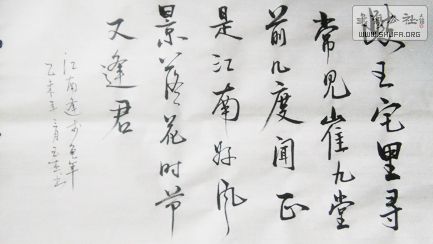 岐王宅里寻
常见崔九堂
前几度闻正
是江南好风
景落花时节
又逢君
江南逢李龟年
WWW.SHUFA.ORG